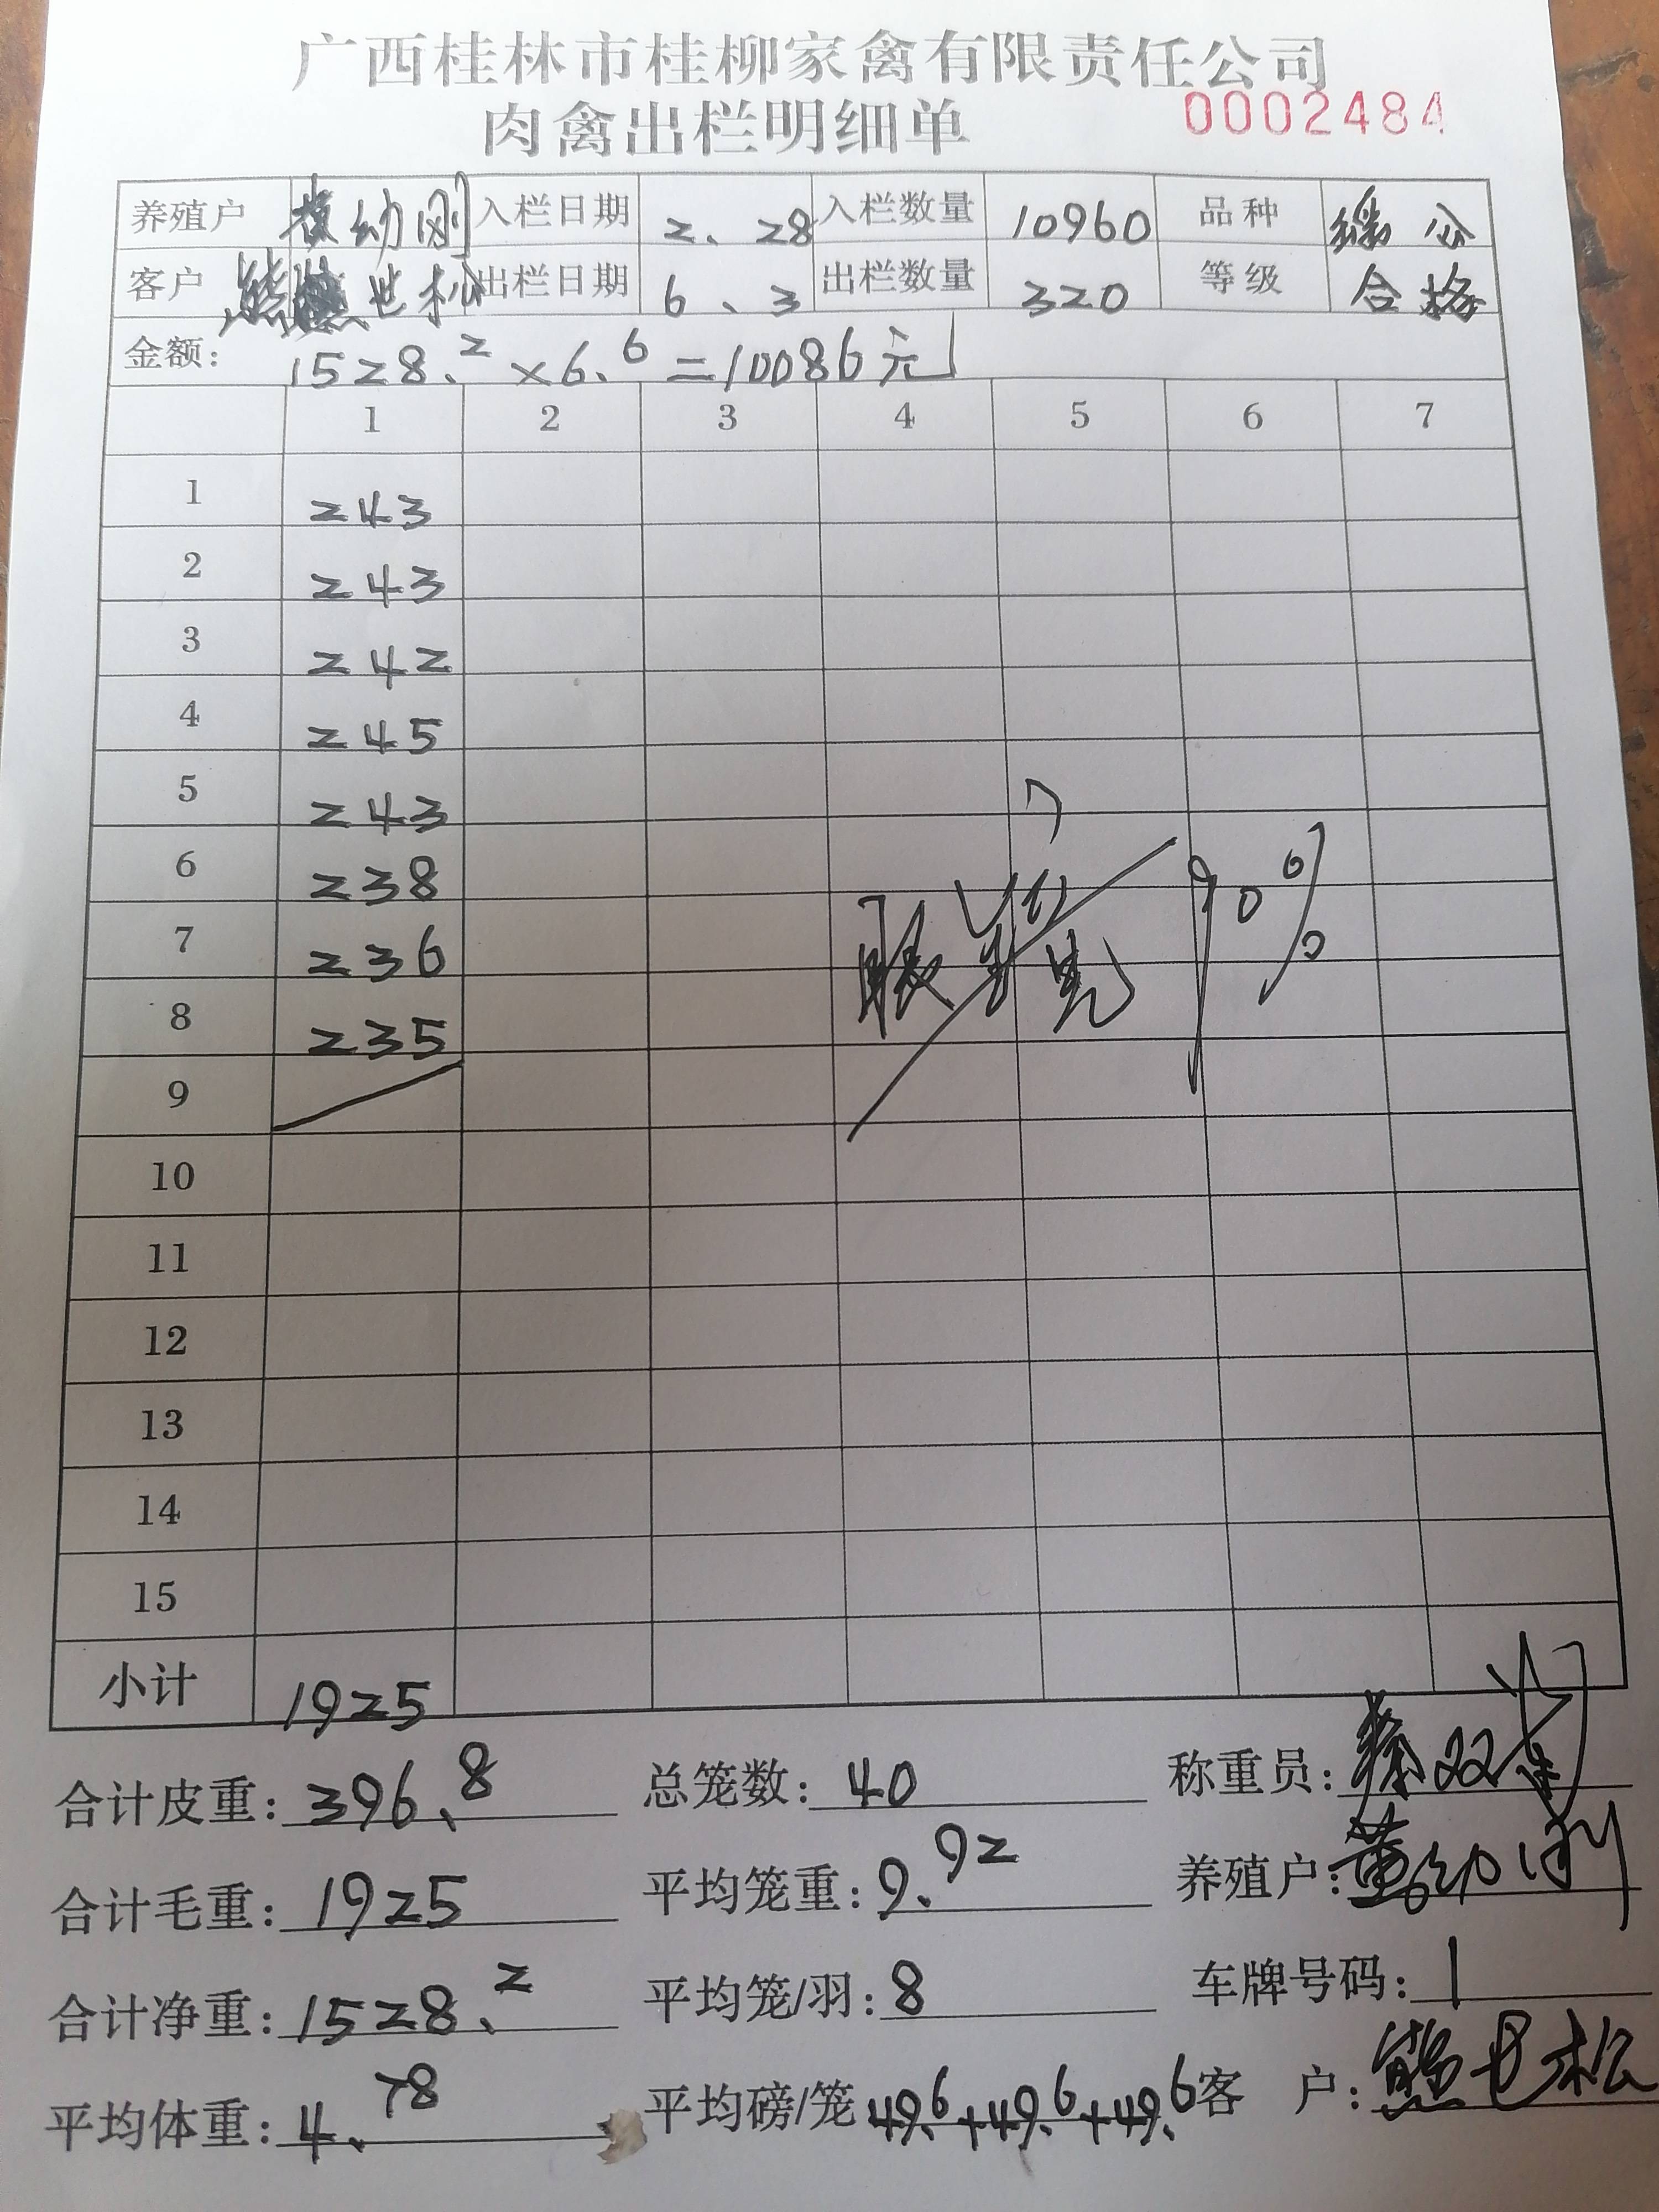 广西桂林市桂柳家禽有限责任公司
肉禽出栏明细单 0002484
养殖户 幼刚 入栏日期 2、28 入栏数量 10960 品种 瑶公
客户 熊世松 出栏日期 6、3 出栏数量 320 等级 合格
金额: 1528.2 ×6.6 =10086元
1 2 3 4 5 6 7
1 243
2 243
3 242
4 245
5 243
6 238
7 236 眼 90%
8 235
9
10
11
12
13
14
15
小计 1925
合计皮重: 396.8 总笼数: 40 称重员: 双
合计毛重: 1925 平均笼重: 9.92 养殖户: 董幼刚
合计净重: 1528.2 平均笼/羽: 8 车牌号码: 1
平均体重: 4.78 平均磅/笼 49.6+49.6+49.6 客 户: 熊世松